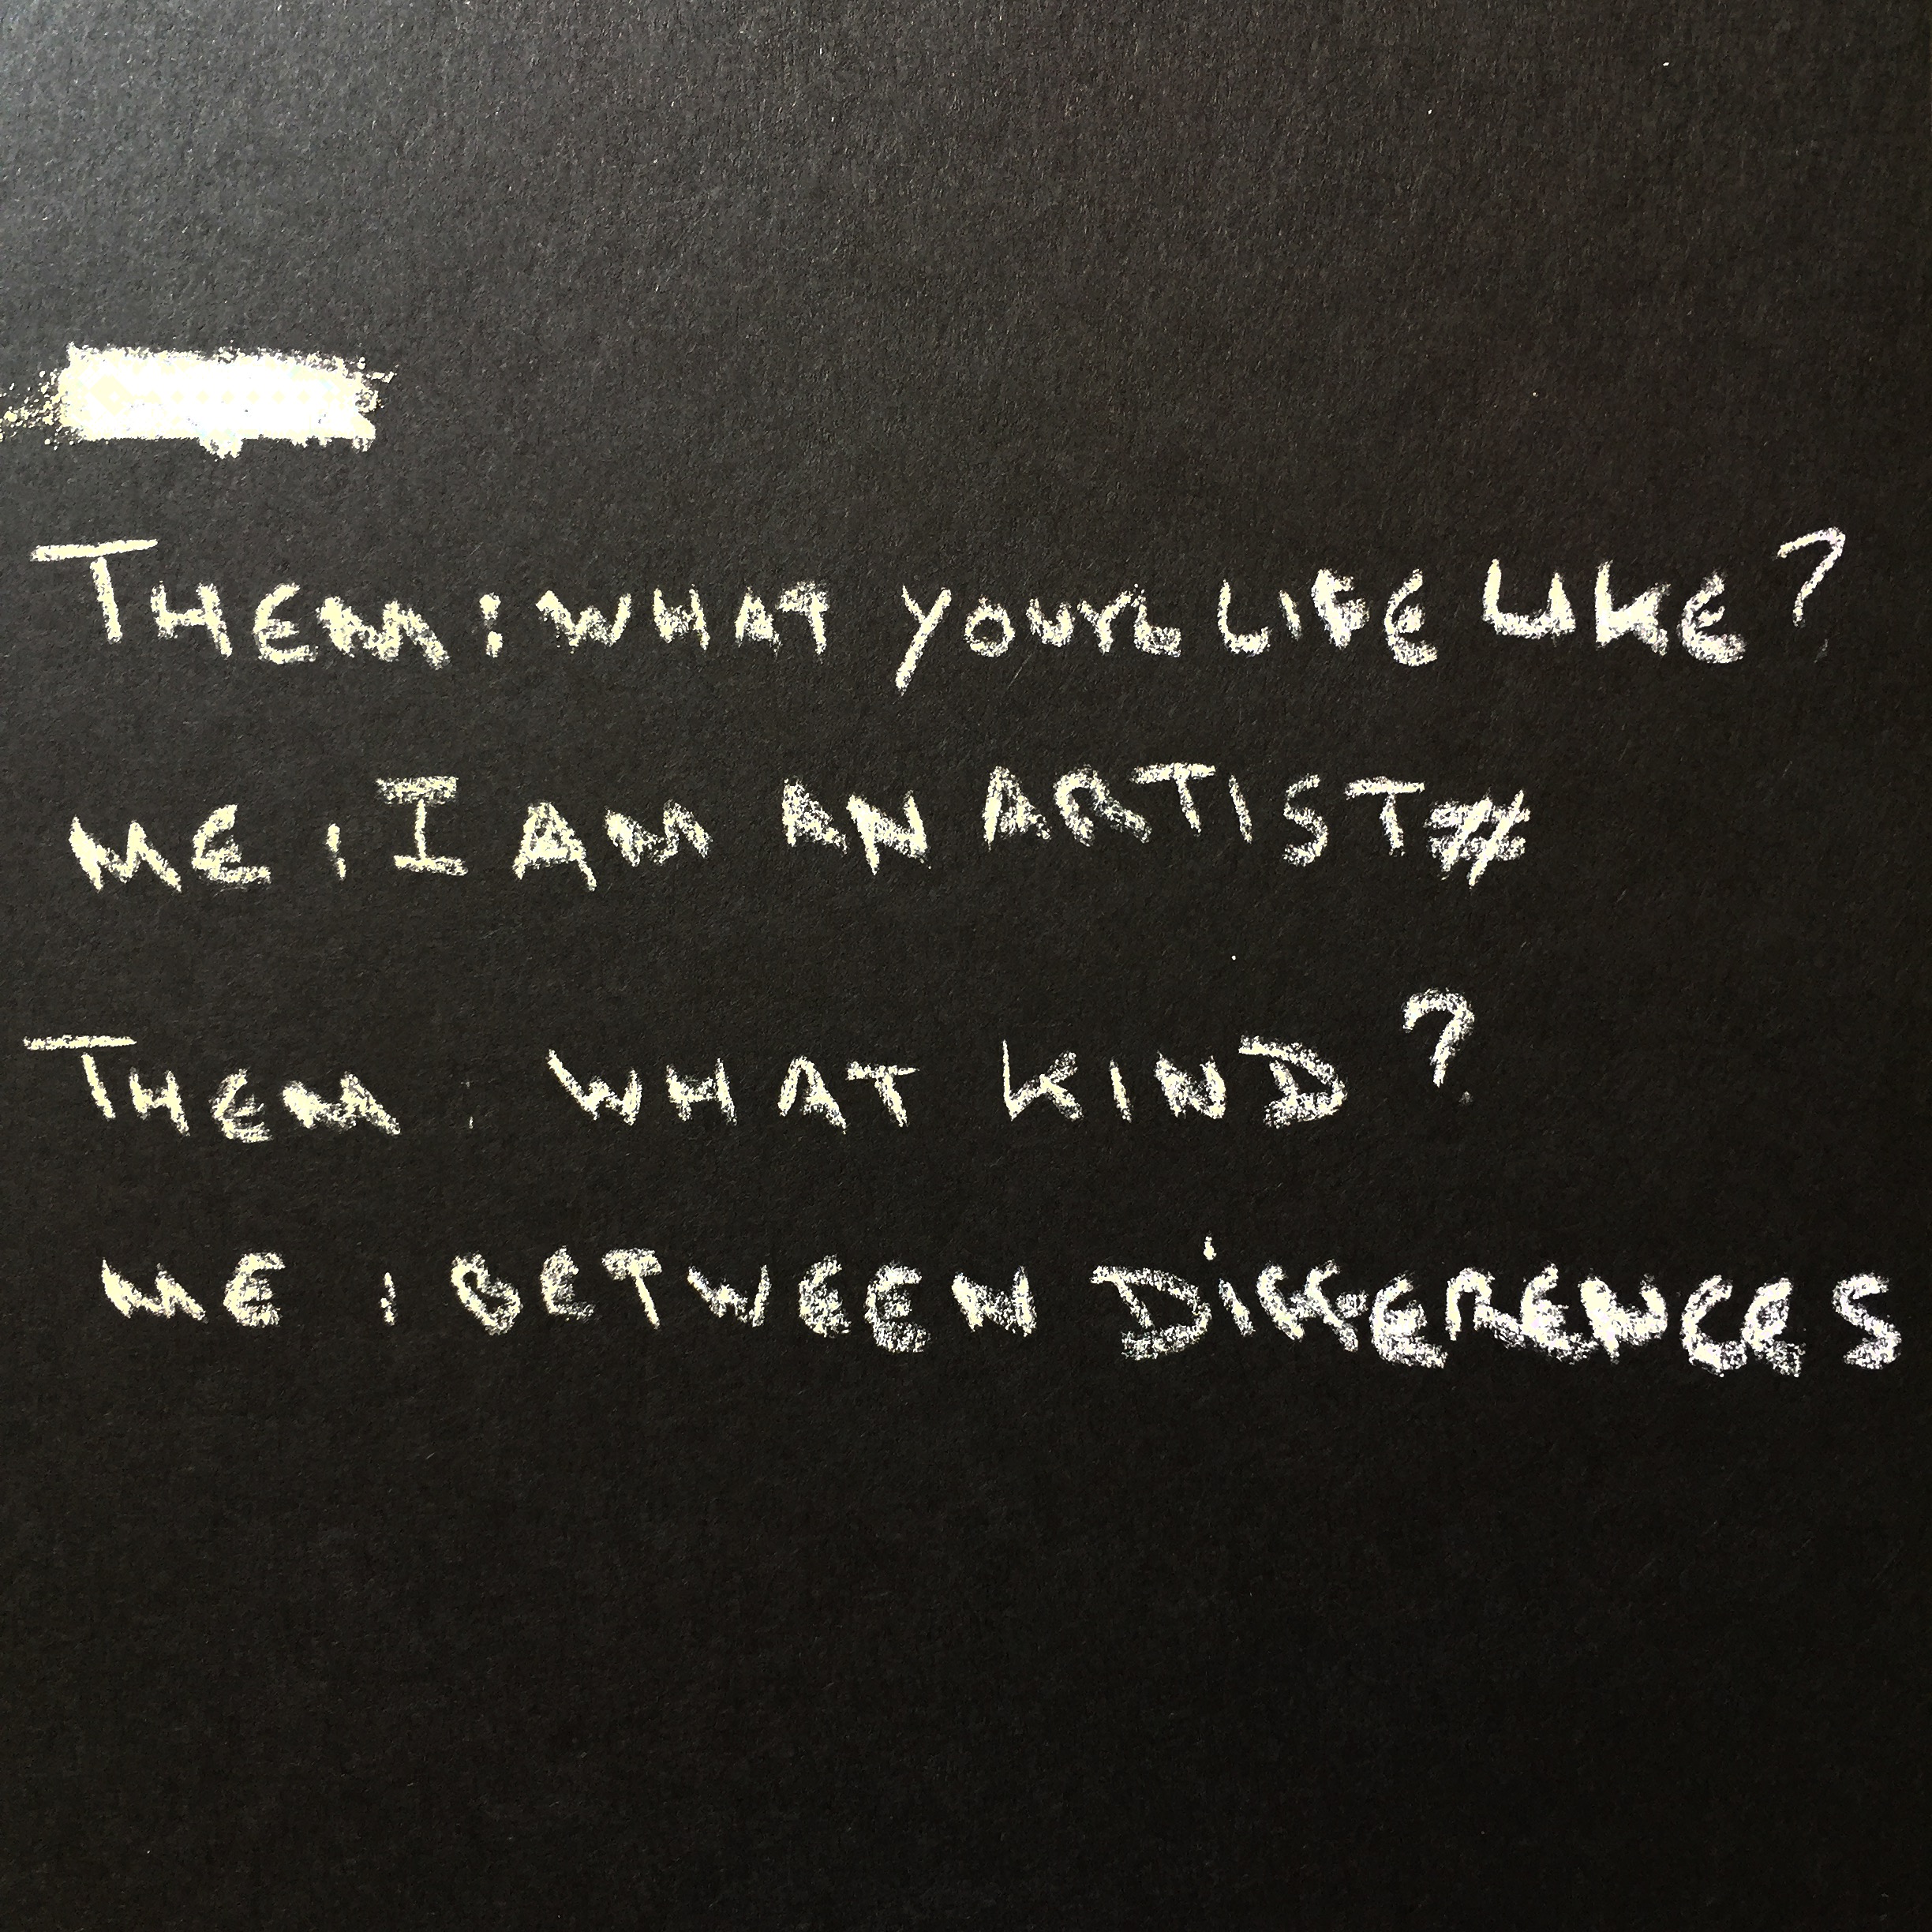 THEM: WHAT YOUR LIFE LIKE?
ME: I AM AN ARTIST
THEM: WHAT KIND?
ME: BETWEEN DIFFERENCES